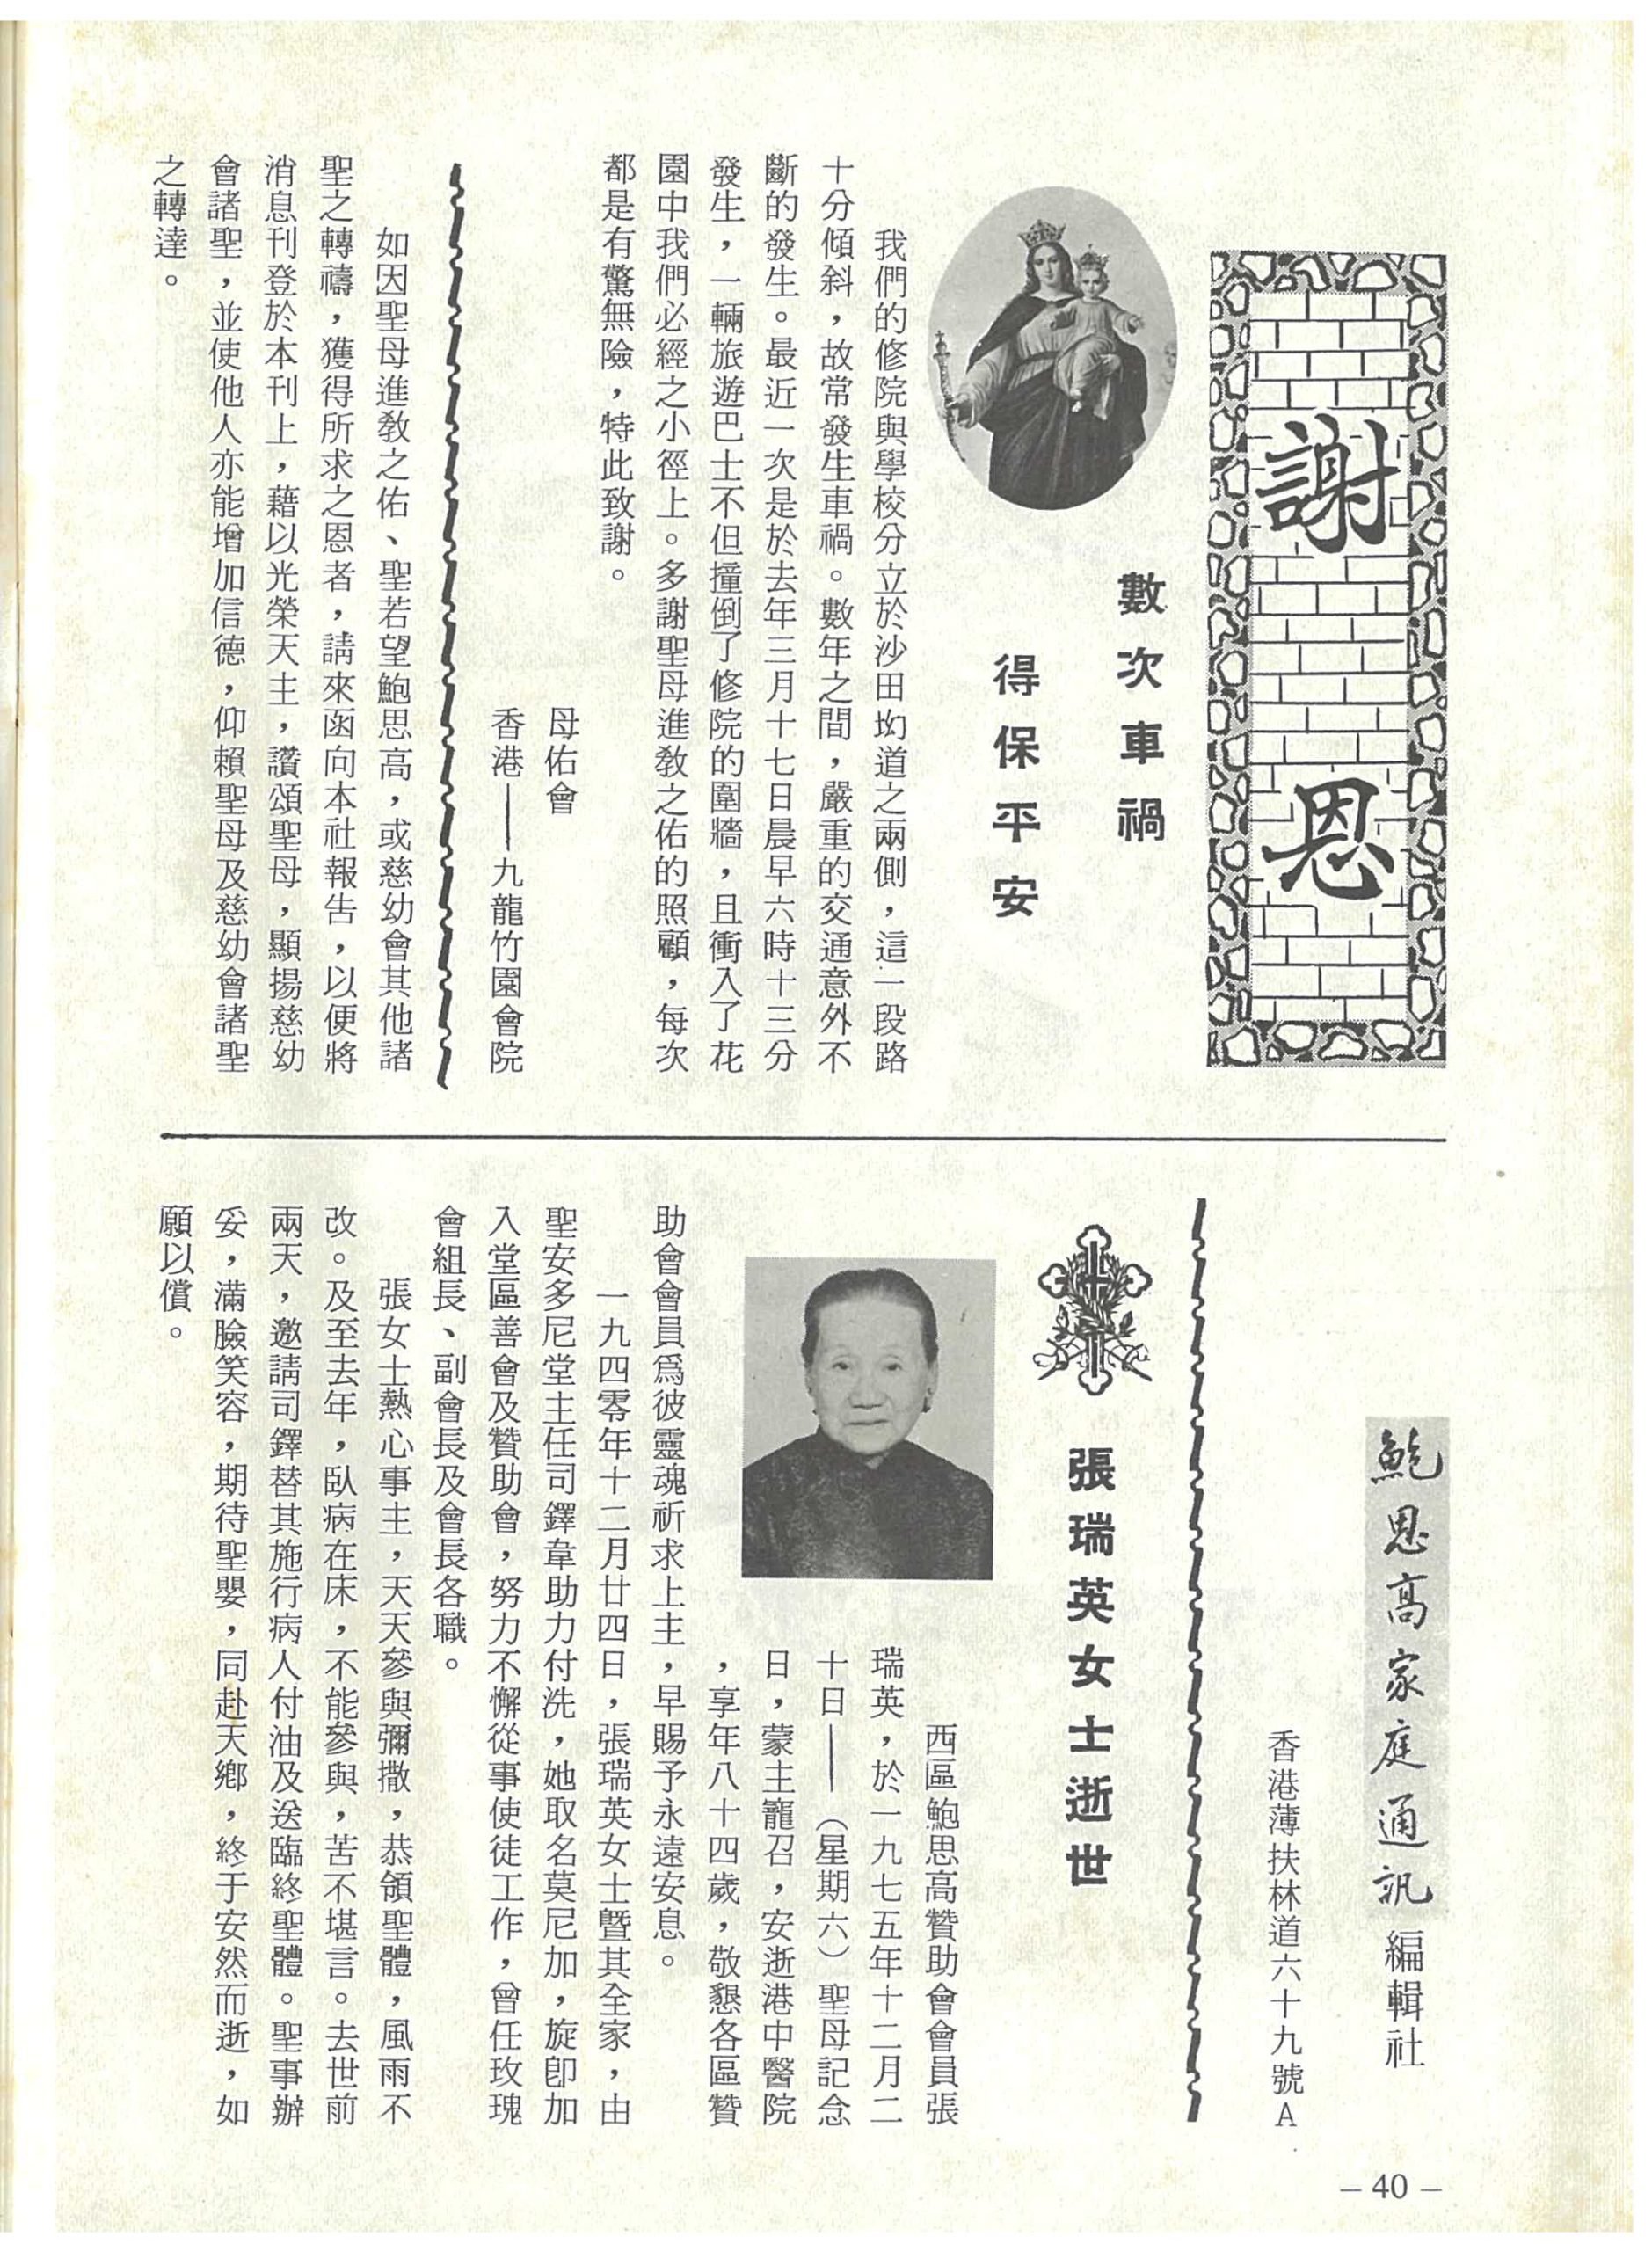 謝恩
數次車禍
得保平安
我們的修院與學校分立於沙田坳道之兩側，這一段路
十分傾斜，故常發生車禍。數年之間，嚴重的交通意外不
斷的發生。最近一次是於去年三月十七日晨早六時十三分
發生，一輛旅遊巴士不但撞倒了修院的圍牆，且衝入了花
園中我們必經之小徑上。多謝聖母進教之佑的照顧，每次
都是有驚無險，特此致謝。
母佑會
香港——九龍竹園會院
如因聖母進教之佑、聖若望鮑思高，或慈幼會其他諸
聖之轉禱，獲得所求之恩者，請來函向本社報告，以便將
消息刊登於本刊上，藉以光榮天主，讚頌聖母，顯揚慈幼
會諸聖，並使他人亦能增加信德，仰賴聖母及慈幼會諸聖
之轉達。
鮑思高家庭通訊編輯社
香港薄扶林道六十九號A
張瑞英女士逝世
西區鮑思高贊助會會員張
瑞英，於一九七五年十二月二
十日——（星期六）聖母記念
日，蒙主寵召，安逝港中醫院
，享年八十四歲，敬懇各區贊
助會會員爲彼靈魂祈求上主，早賜予永遠安息。
一九四零年十二月廿四日，張瑞英女士暨其全家，由
聖安多尼堂主任司鐸韋助力付洗，她取名莫尼加，旋即加
入堂區善會及贊助會，努力不懈從事使徒工作，曾任玫瑰
會組長、副會長及會長各職。
張女士熱心事主，天天參與彌撒，恭領聖體，風雨不
改。及至去年，臥病在床，不能參與，苦不堪言。去世前
兩天，邀請司鐸替其施行病人付油及送臨終聖體。聖事辦
妥，滿臉笑容，期待聖嬰，同赴天鄉，終于安然而逝，如
願以償。
– 40 –